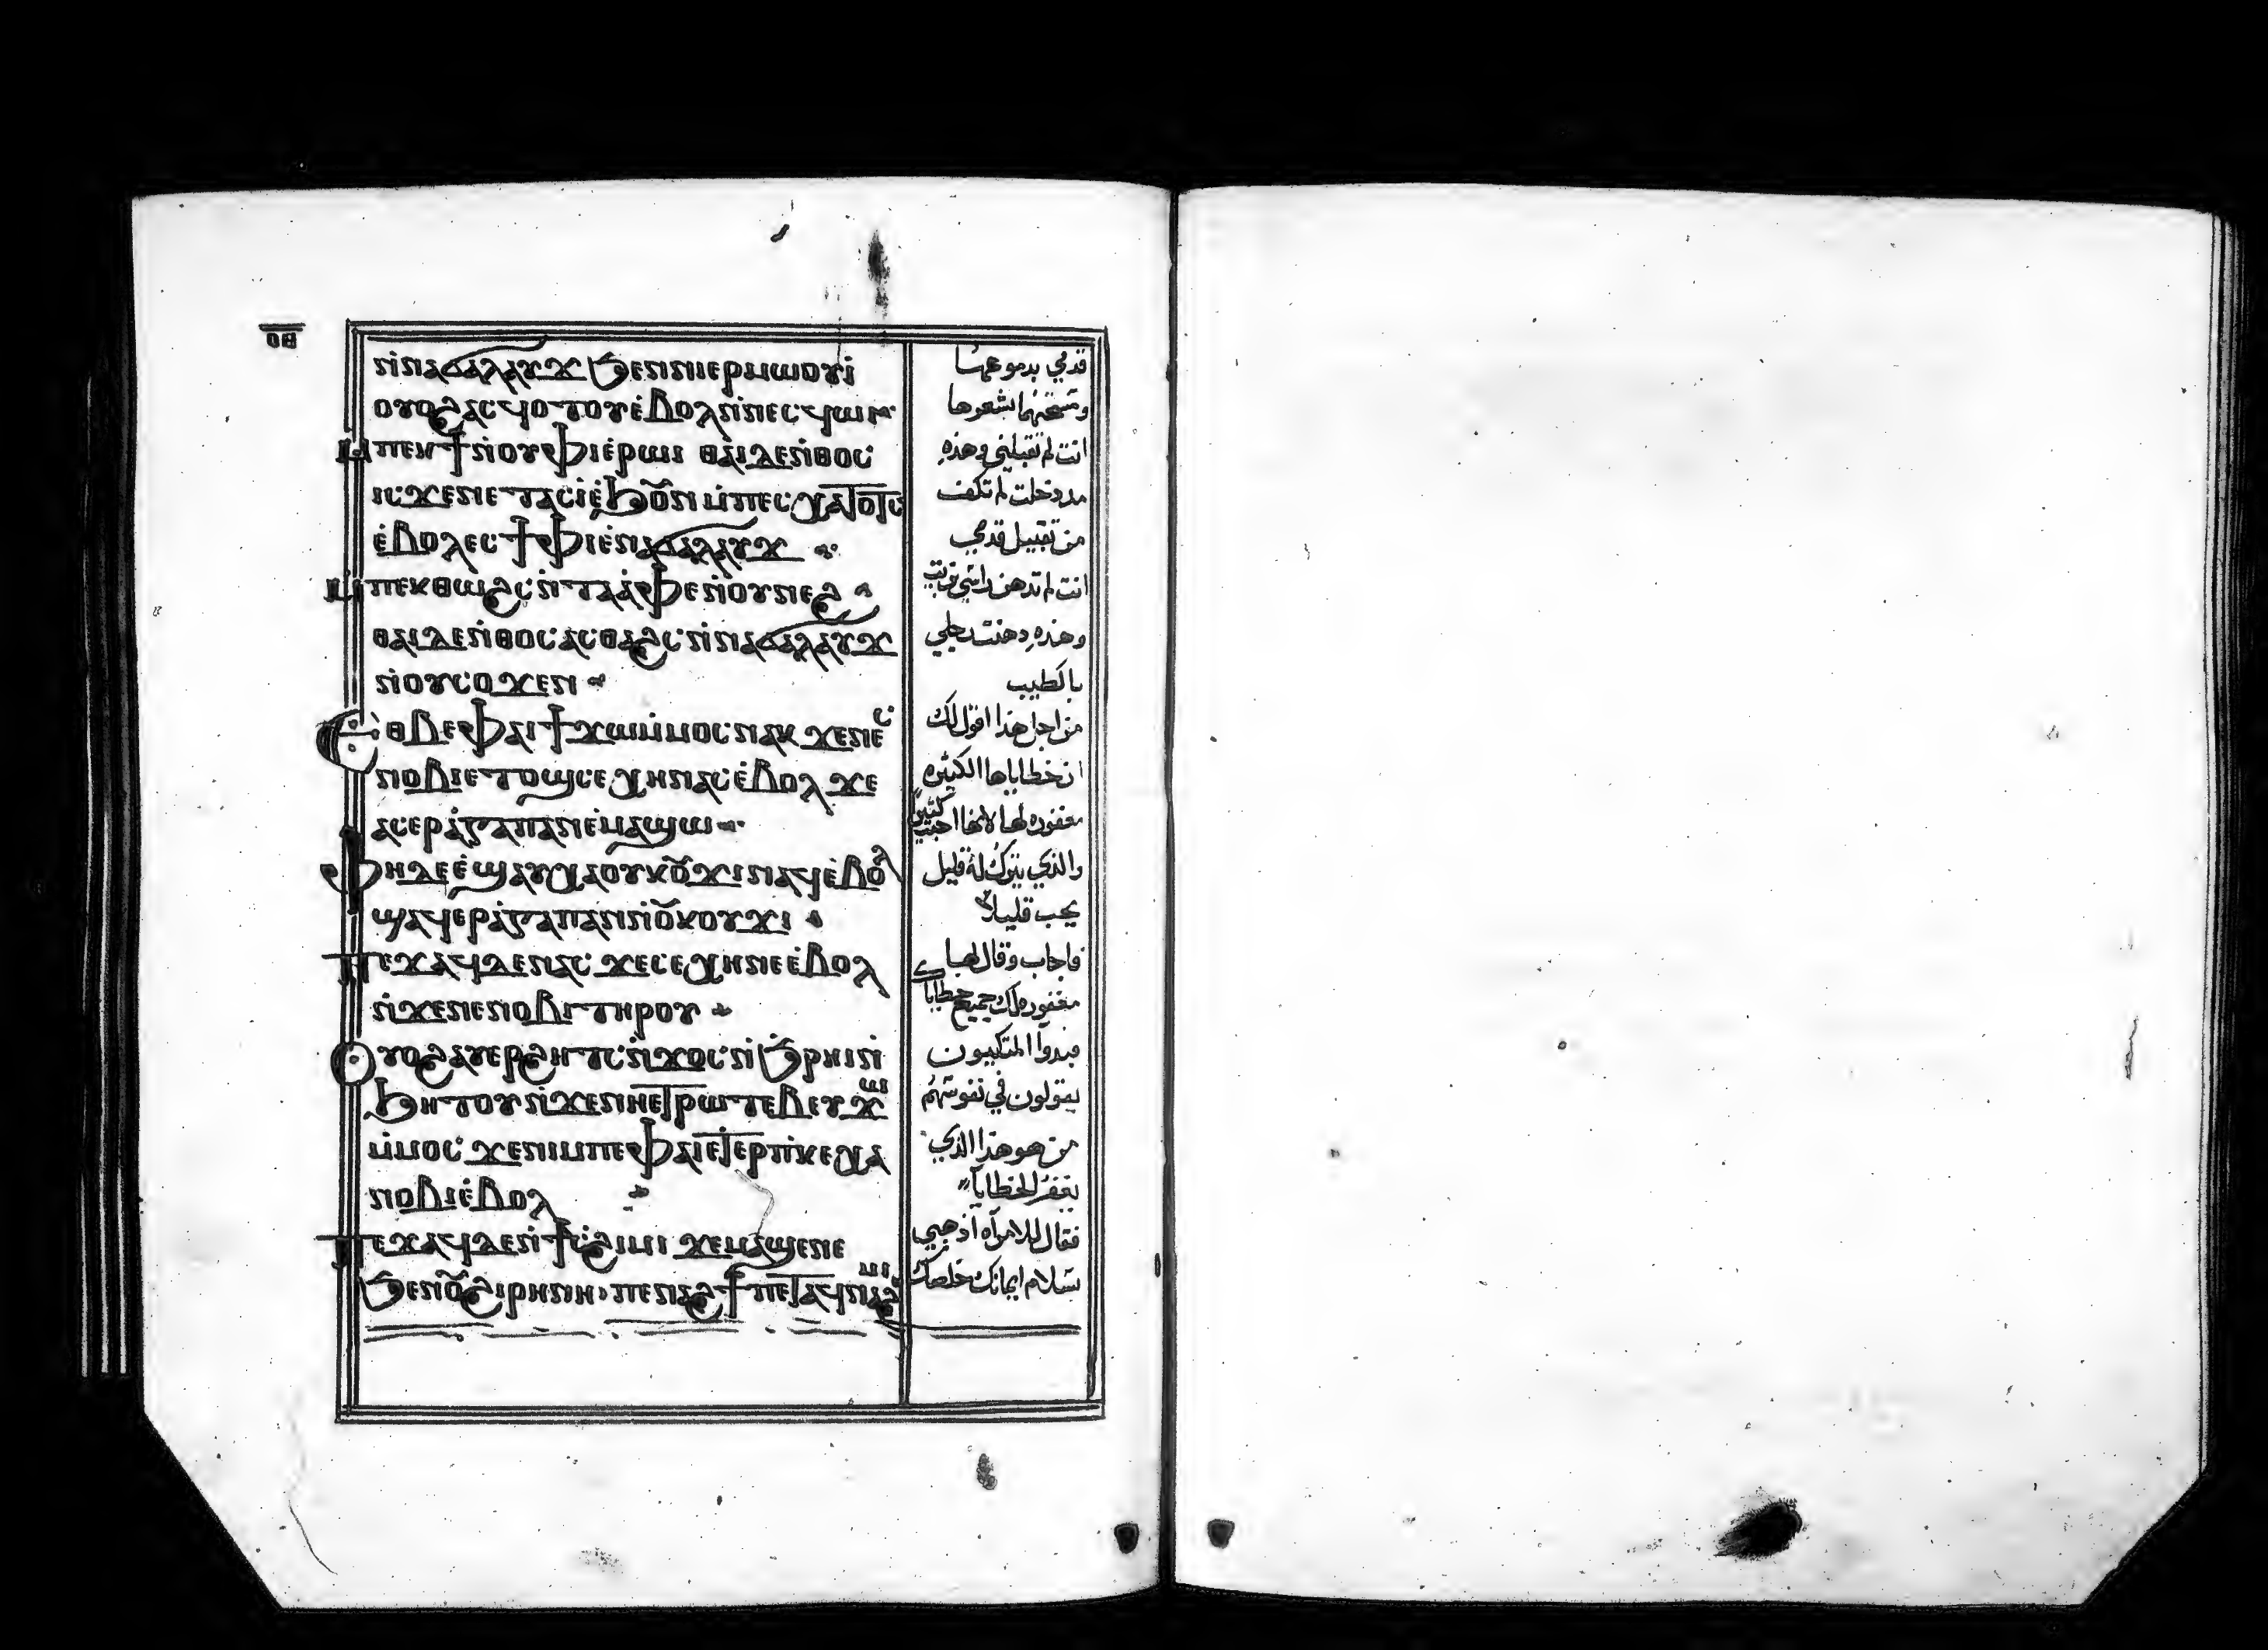 ⲟⲃ
ⲛ̀ⲛⲁϭⲁⲗⲁⲩϫ ϧⲉⲛⲛⲉⲣⲙⲱⲟⲩⲓ̀
ⲟⲩⲟϩⲁⲥϥⲟⲧⲟⲩⲉ̀ⲃⲟⲗⲙ̀ⲡⲉⲥϥⲱⲓ
ⲙⲡⲉⲕϯⲛ̀ⲟⲩⲫⲓⲉ̀ⲣⲱⲓ ⲑⲁⲓⲇⲉⲛ̀ⲑⲟⲥ
ⲓⲥϫⲉⲛⲉⲧⲁⲥⲓ̀ⲉ̀ϧⲟⲩⲛ ⲙ̀ⲡⲉⲥⲭⲁⲧⲟⲧⲥ
ⲉ̀ⲃⲟⲗⲉⲥϯⲫⲓⲉ̀ⲛⲁϭⲁⲗⲁⲩϫ
ⲙⲡⲉⲕⲑⲱϩⲥ ⲛ̀ⲧⲁⲁ̀ⲫⲉⲛ̀ⲟⲩⲛⲉϩ
ⲑⲁⲓⲇⲉⲛ̀ⲑⲟⲥⲁⲥⲑⲁϩⲥ ⲛ̀ⲛⲁϭⲁⲗⲁⲩϫ
ⲛ̀ⲟⲩⲥⲟϫⲉⲛ
Ⲉⲑⲃⲉⲫⲁⲓ ϯϫⲱⲙ̀ⲙⲟⲥⲛⲁⲕ ϫⲉⲛⲉⲥ
ⲛⲟⲃⲓⲉⲧⲟϣⲥⲉⲭⲏⲛⲁⲥⲉ̀ⲃⲟⲗ ϫⲉ
ⲁⲥⲉⲣⲁ̀ⲅⲁⲡⲁⲛⲉ̀ⲙⲁϣⲱ
Ⲫⲏⲇⲉⲉ̀ϣⲁⲩⲭⲁⲟⲩⲕⲟⲩϫⲓⲛⲁϥⲉ̀ⲃⲟⲗ
ϣⲁϥⲉⲣⲁ̀ⲅⲁⲡⲁⲛⲛ̀ⲟⲩⲕⲟⲩϫⲓ
Ⲡⲉϫⲁϥⲇⲉⲛⲁⲥ ϫⲉⲥⲉⲭⲏⲛⲉⲉ̀ⲃⲟⲗ
ⲛ̀ϫⲉⲛⲉⲛⲟⲃⲓⲧⲏⲣⲟⲩ
Ⲟⲩⲟϩⲁⲩⲉⲣϩⲏⲧⲥ ⲛ̀ϫⲟⲥ ⲛ̀ϧⲣⲏⲓⲛ̀
ϧⲏⲧⲟⲩⲛ̀ϫⲉⲛⲏⲉⲧⲣⲱⲧⲉⲃⲉⲩϫⲱ
ⲙ̀ⲙⲟⲥ ϫⲉⲛⲓⲙⲡⲉⲫⲁⲓⲉⲧⲉⲣⲡⲕⲉⲭⲁ
ⲛⲟⲃⲓⲉ̀ⲃⲟⲗ
Ⲡⲉϫⲁϥⲇⲉⲛ̀ϯⲥϩⲓⲙⲓ ϫⲉⲙⲁϣⲉⲛⲉ
ϧⲉⲛⲟⲩϩⲓⲣⲏⲛⲏ ⲡⲉⲛⲁϩϯⲡⲉⲧⲁϥⲛⲁϩⲙⲓ
قدمي بدموعها
ومسحتهما بشعرها
انت لم تقبلني وهذهِ
مدد دخلت لم تكف
من تقبيل قدمي
انت لم تدهن راسي بزيت
وهذهِ دهنت رجلي
بالطيب
من اجل هذا اقول لك
ان خطاياها الكثيره
مغفوره لها لانها احبت كثيرا
والذي يترك له قليل
يحب قليلاً
فاجاب وقال لها
مغفوره لك جميع خطاياكي
فبدوا المتكييون
يقولون في نفوسهم
من هو هذا الذي
يغفر الخطايا
فقال للامرآه آذهبي
بسلام ايمانك خلصك